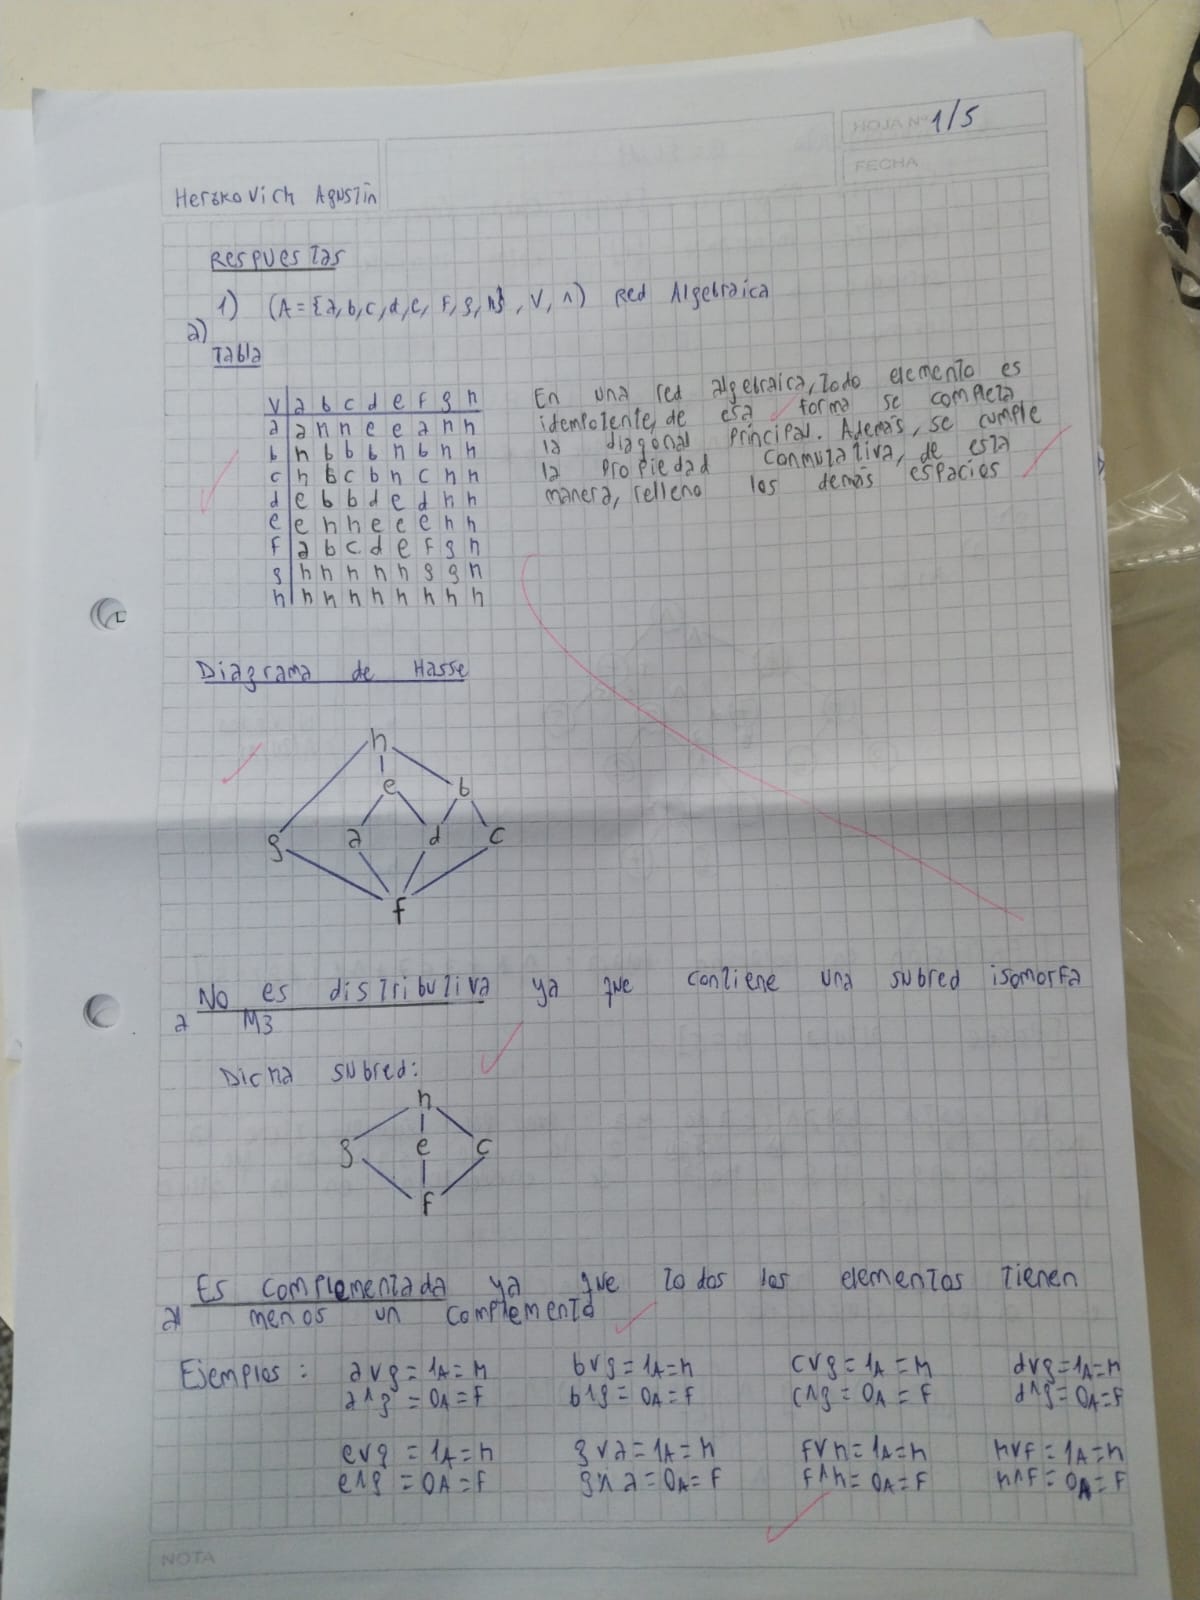 HOJA Nº 1/5
FECHA
Herskovich Agustín
Respuestas
1) (A = {a, b, c, d, e, f, g, h}, ∨, ∧) Red Algebraica
a)
Tabla
∨ | a b c d e f g h
a | a h h e e a h h
b | h b b b h b h h
c | h b c b h c h h
d | e b b d e d h h
e | e h h e e e h h
f | a b c d e f g h
g | h h h h h g g h
h | h h h h h h h h
En una red algebraica, todo elemento es
idempotente, de esa forma se completa
la diagonal principal. Además, se cumple
la propiedad conmutativa, de esta
manera, relleno los demás espacios
Diagrama de Hasse
h
e b
g a d c
f
No es distributiva ya que contiene una subred isomorfa
a M3
Dicha subred:
h
g e c
f
Es complementada ya que todos los elementos tienen
al menos un complemento
Ejemplos: a∨g = 1A = h b∨g = 1A = h c∨g = 1A = h d∨g = 1A = h
a∧g = 0A = f b∧g = 0A = f c∧g = 0A = f d∧g = 0A = f
e∨g = 1A = h g∨a = 1A = h f∨h = 1A = h h∨f = 1A = h
e∧g = 0A = f g∧a = 0A = f f∧h = 0A = f h∧f = 0A = f
NOTA